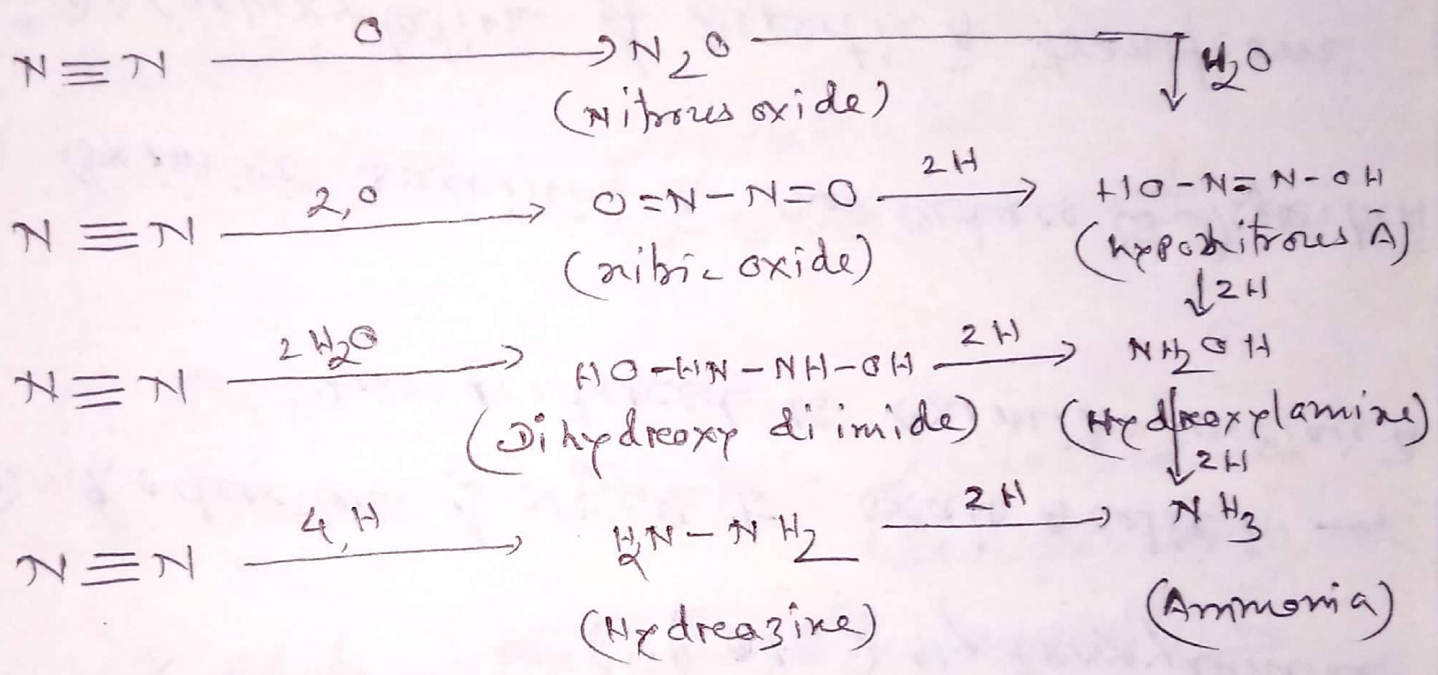 N≡N —O→ N2O —↓ H2O
(Nitrous oxide)
N≡N —2,O→ O=N-N=O —2H→ HO-N=N-OH
(nitric oxide) (hyponitrous A)
↓2H
N≡N —2H2O→ HO-HN-NH-OH —2H→ NH2OH
(Dihydroxy diimide) (Hydroxylamine)
↓2H
N≡N —4,H→ H2N-NH2 —2H→ NH3
(Hydrazine) (Ammonia)